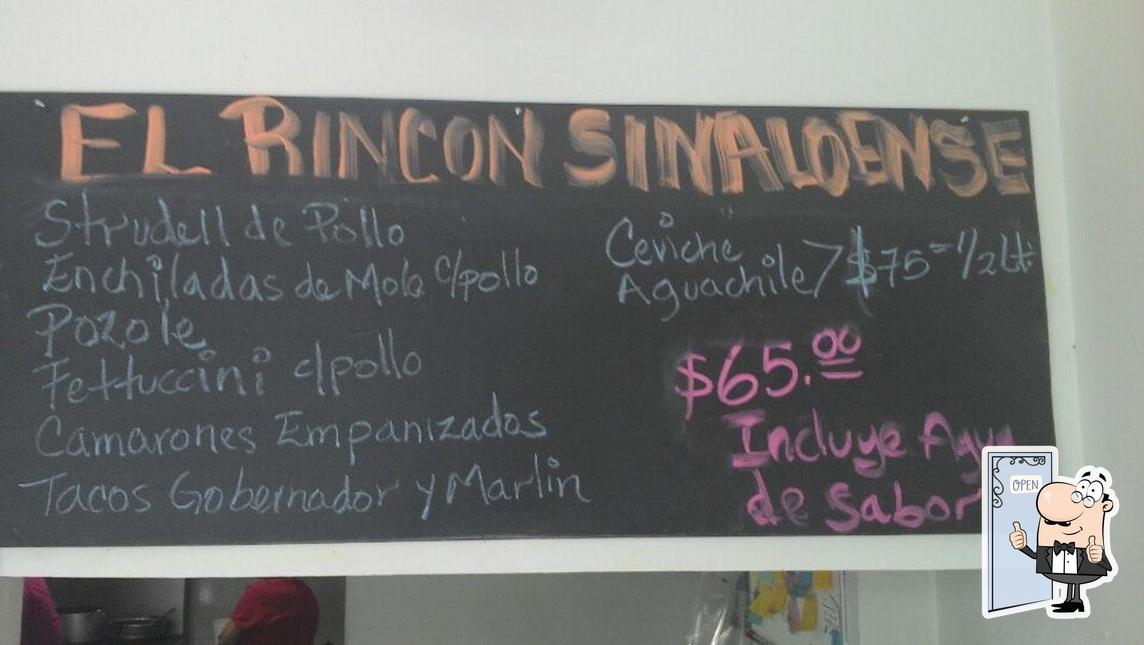 EL RINCON SINALOENSE
Strudell de Pollo
Enchiladas de Mole c/pollo
Pozole
Fettuccini c/pollo
Camarones Empanizados
Tacos Gobernador y Marlin
Ceviche
Aguachile > $75= 1/2 Lt.
$65.00
Incluye Agua
de sabor
OPEN